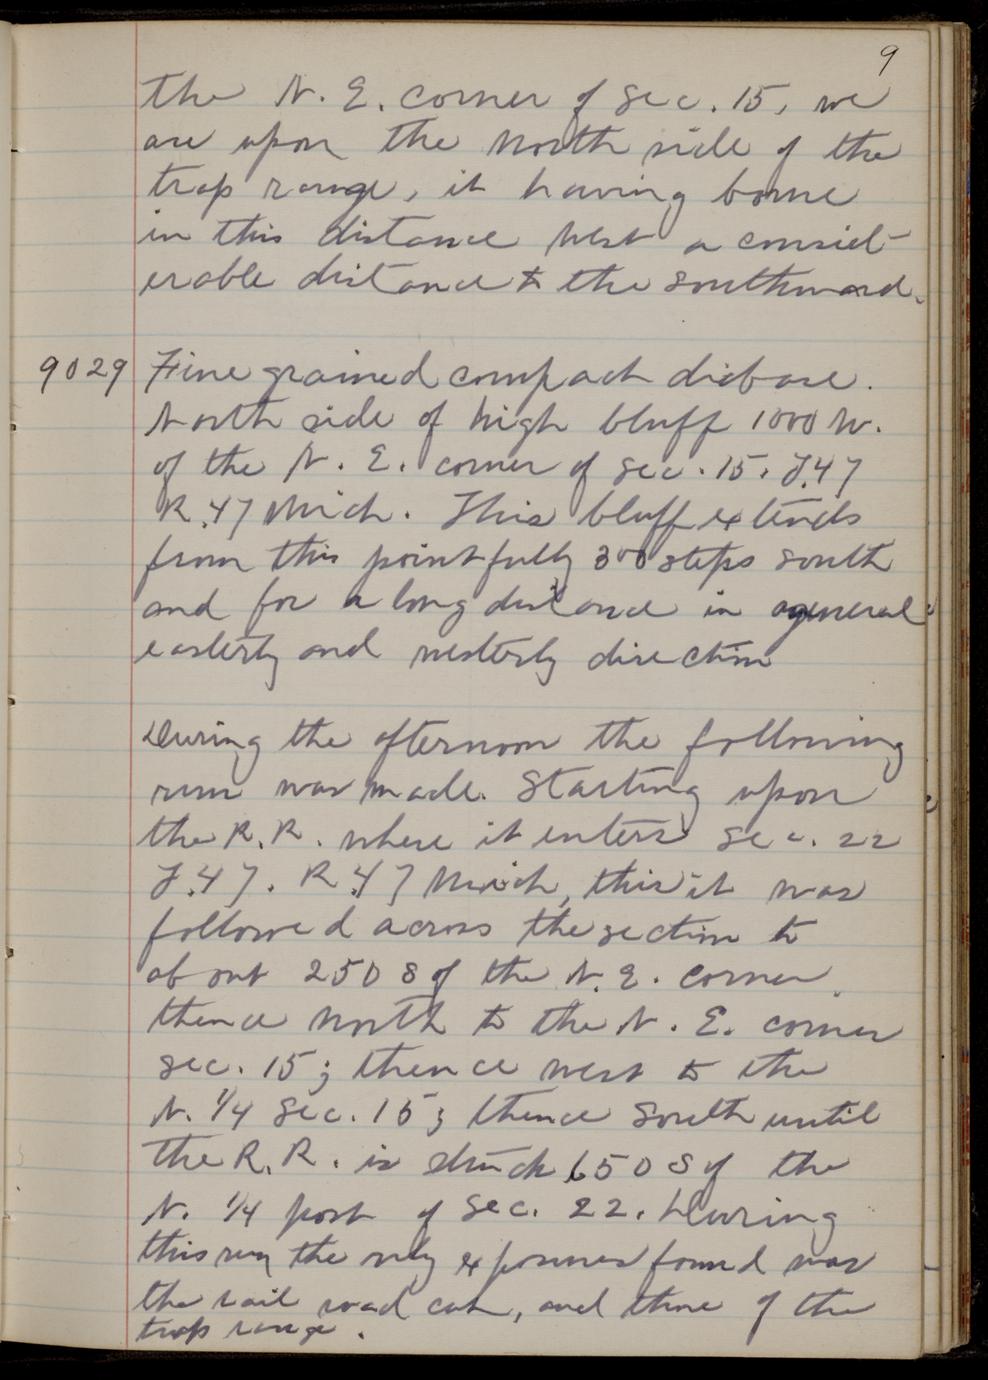 9
the N. E. corner of Sec. 15, we
are upon the North side of the
trap range, it having borne
in this distance West a consid-
erable distance to the southward.
9029 Fine grained compact diabase.
North side of high bluff 1000 W.
of the N. E. corner of Sec. 15. T.47
R.47 Mich. This bluff extends
from this point fully 300 steps south
and for a long distance in a general
easterly and westerly direction
During the afternoon the following
run was made. Starting upon
the R.R. where it enters Sec. 22
T.47. R.47 Mich, this it was
followed across the section to
about 250 S of the N. E. corner.
thence North to the N. E. corner
Sec. 15; thence west to the
N. 1/4 Sec. 15; thence South until
the R.R. is struck 650 S of the
N. 1/4 post of Sec. 22. During
this run the only exposures found was
the rail road cut, and those of the
trap range.